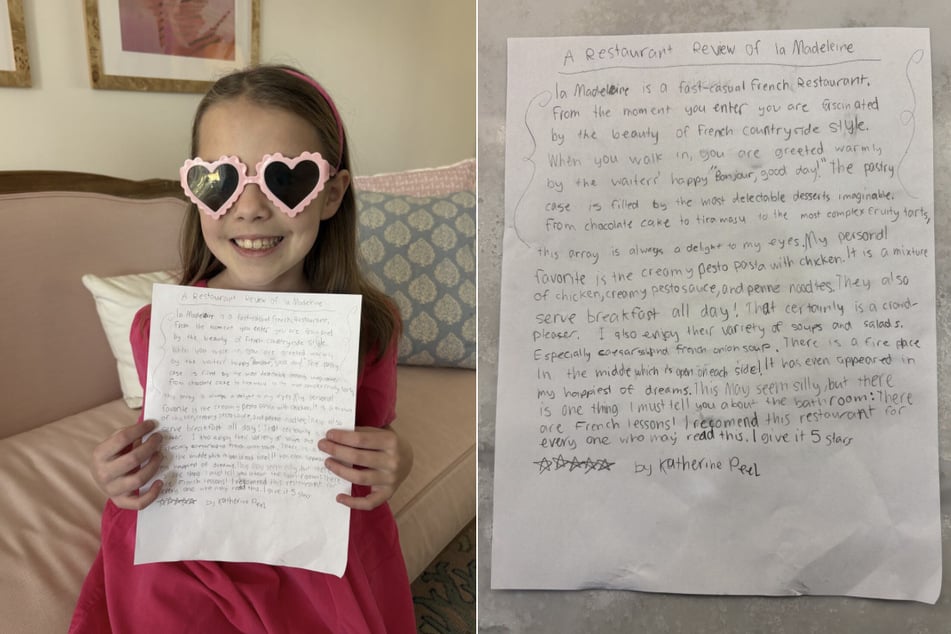 A Restaurant Review of la Madeleine
la Madeleine is a fast-casual French Restaurant.
From the moment you enter you are fascinated
by the beauty of French countryside style.
When you walk in, you are greeted warmly
by the waiters' happy "Bonjour, good day!" The pastry
case is filled by the most delectable desserts imaginable.
From chocolate cake to ticamasu to the most complex fruity tarts,
this array is always a delight to my eyes. My personal
favorite is the creamy pesto pasta with chicken. It is a mixture
of chicken, creamy pesto sauce, and penne noodles. They also
serve breakfast all day! That certainly is a crowd-
pleaser. I also enjoy their variety of soups and salads.
Especially caesar salad and french onion soup. There is a fire place
In the middle which is open on each side! It has even appeared in
my happiest of dreams. This may seem silly, but there
is one thing I must tell you about the bathroom: There
are French lessons! I recomend this restaurant for
every one who may read this. I give it 5 stars
☆☆☆☆☆ by Katherine Peel